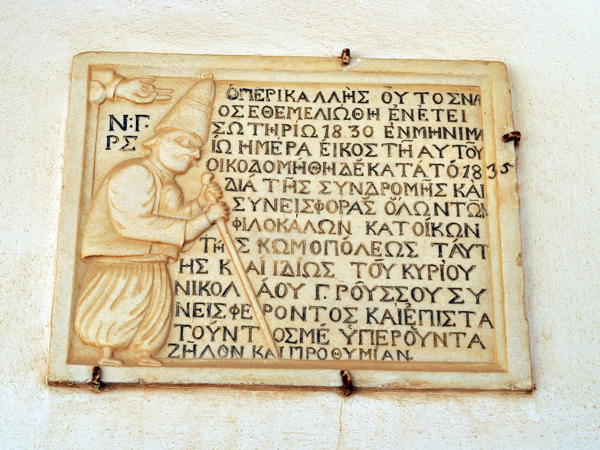 Ν:Γ.
ΡΣ
ὉΠΕΡΙΚΑΛΛῊΣ ΟΥ̓ΤΟΣΝΑ
ΟΣ ἘΘΕΜΕΛΙΏΘΗ ἘΝΈΤΕΙ
ΣΩΤΗΡΊΩ 1830 ΕΝΜΗΝΙΜΑ
ΙΩ ΗΜΕΡΑ ΕΙΚΟΣΤΗ ΑΥΤΟΥ
ΟΙΚΟΔΟΜΗΘΗ ΔΕ ΚΑΤΑΤΌ 1835
ΔΙΑ ΤΗΣ ΣΥΝΔΡΟΜΗΣ ΚΑΙ
ΣΥΝΕΙΣΦΟΡΑΣ ΟΛΩΝ ΤΩΝ
ΦΙΛΟΚΑΛΩΝ ΚΑΤΟΙΚΩΝ
ΤΗΣ ΚΩΜΟΠΟΛΕΩΣ ΤΑΥΤ
ΗΣ ΚΑΙ ΙΔΙΩΣ ΤΟΥ ΚΥΡΙΟΥ
ΝΙΚΟΛΑΟΥ Γ. ΡΟΥΣΣΟΥ ΣΥ
ΝΕΙΣΦΕΡΟΝΤΟΣ ΚΑΙ ΕΠΙΣΤΑ
ΤΟΥΝΤΟΣ ΜΕ ΥΠΕΡΟΥΝΤΑ
ΖΗΛΟΝ ΚΑΙ ΠΡΟΘΥΜΙΑΝ